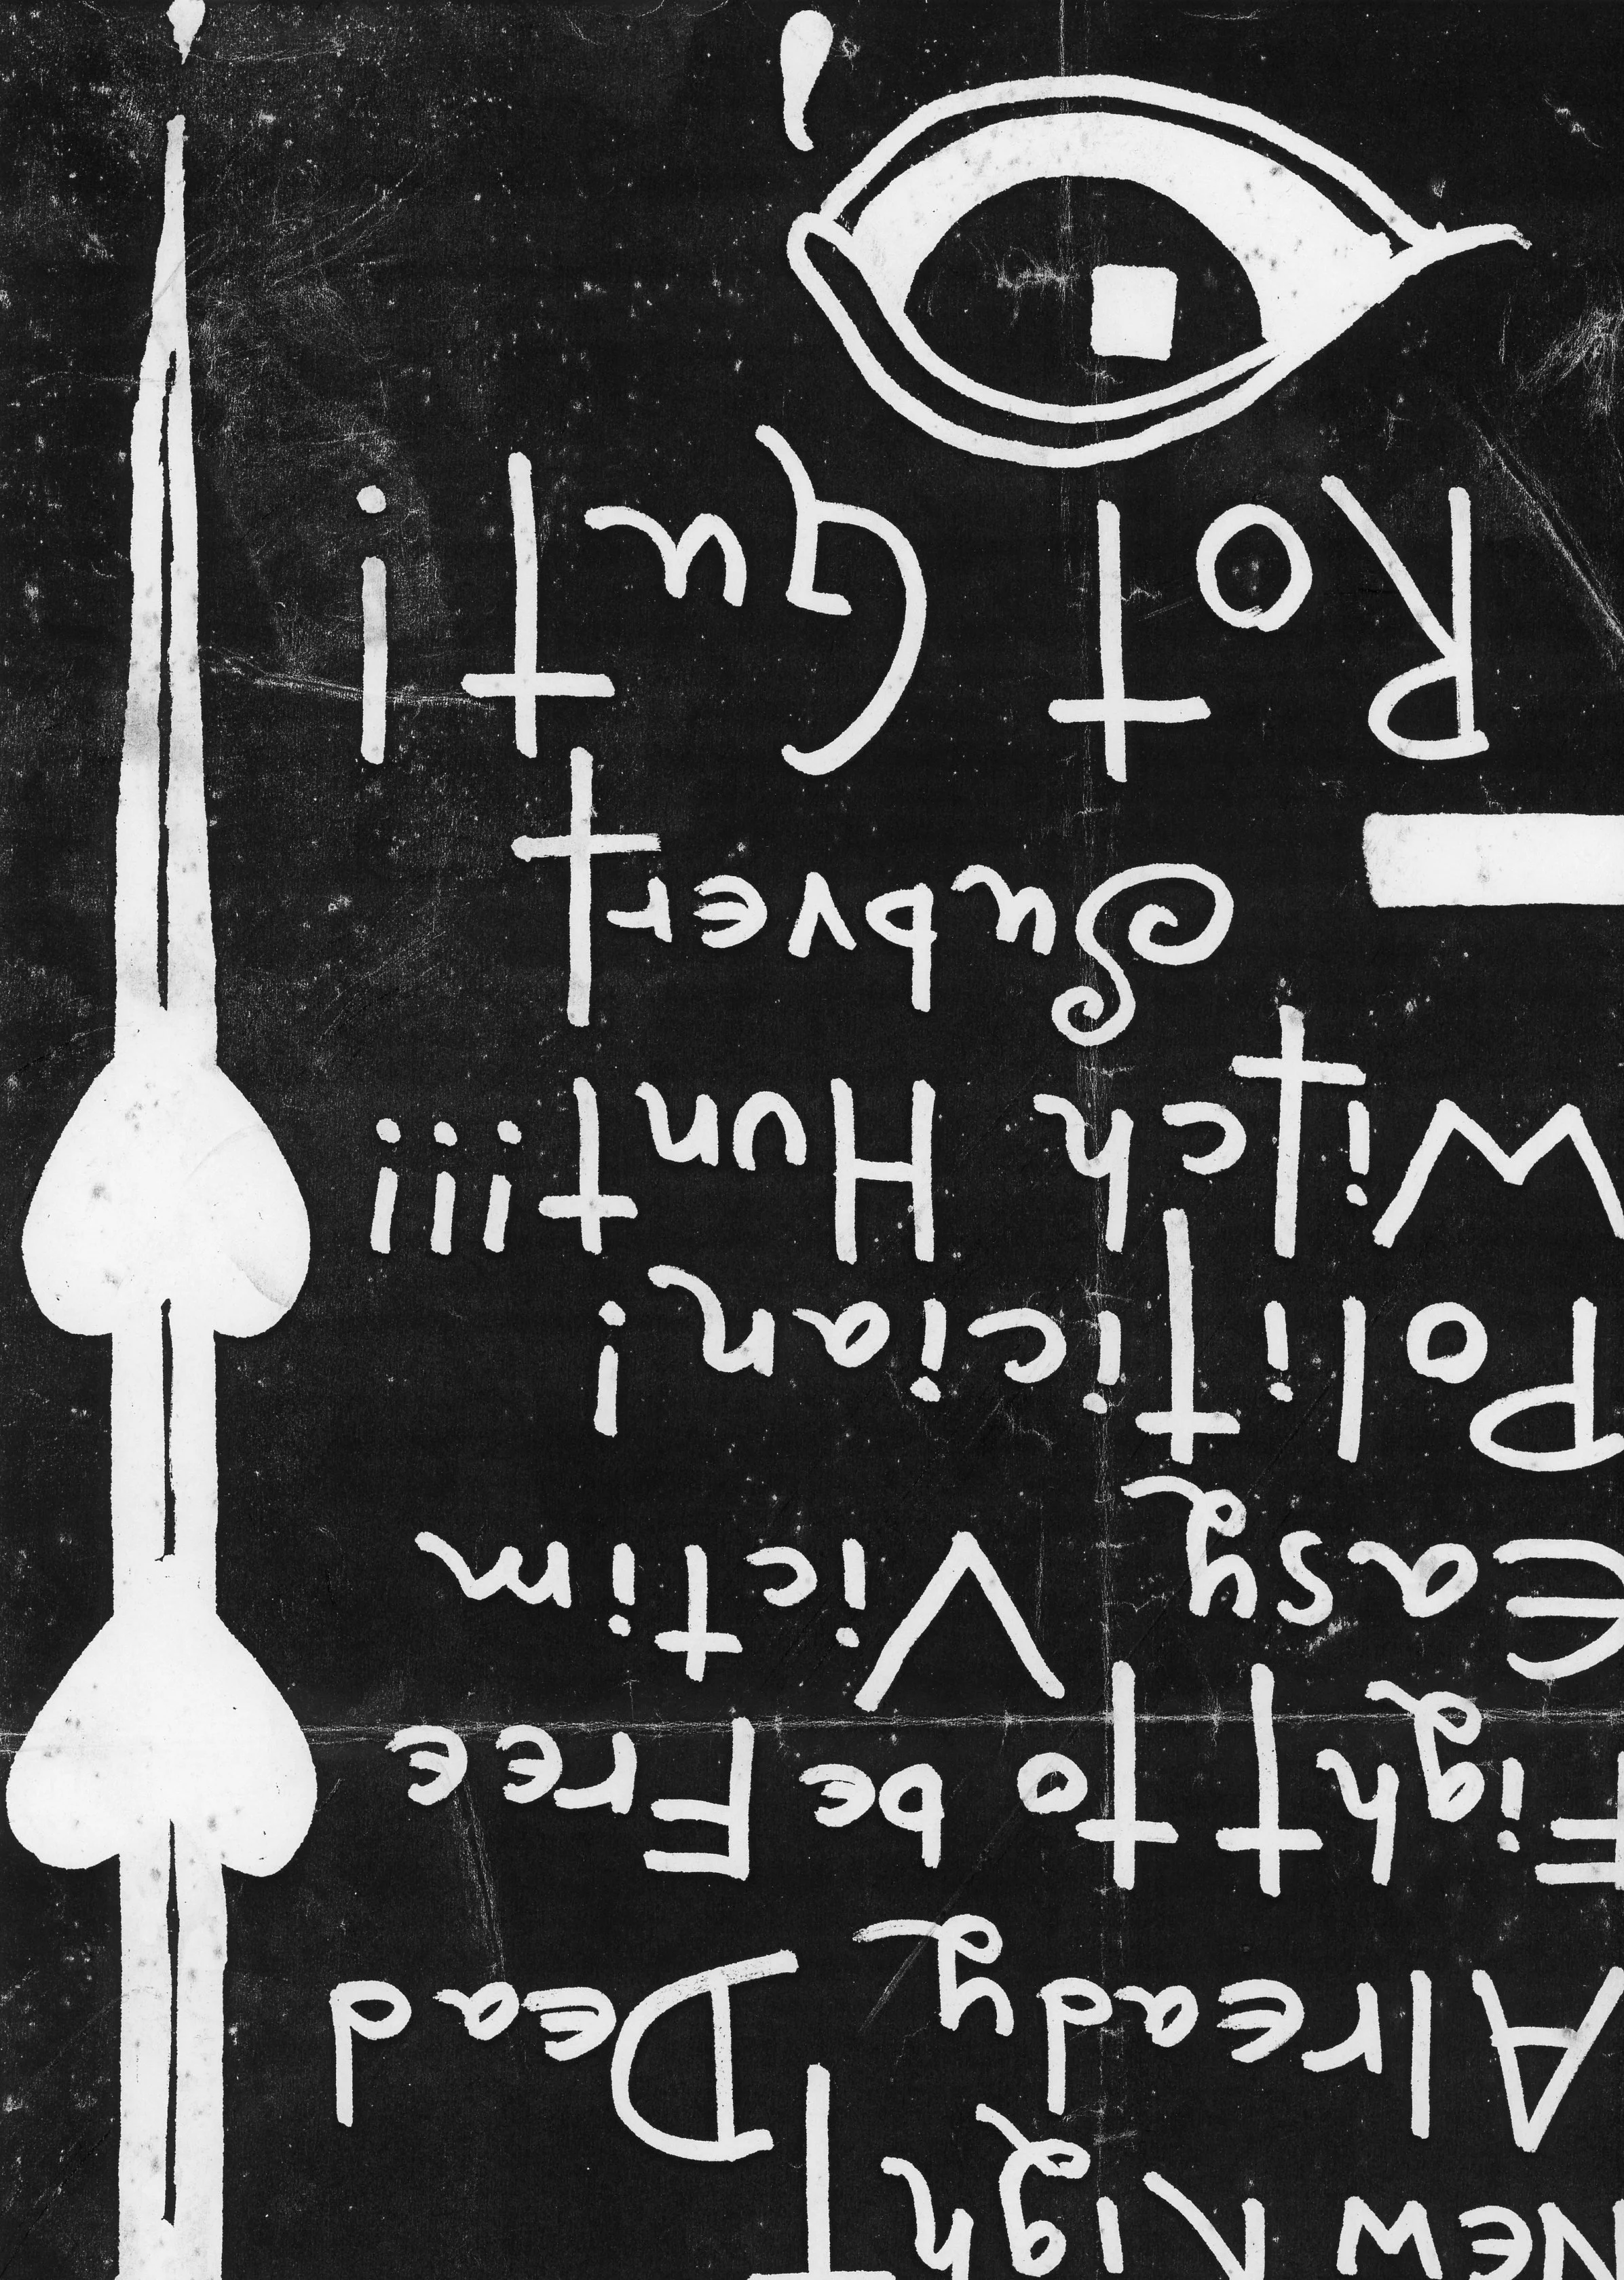 New Right
Already Dead
Fight to be Free
Easy Victim
Politician!
Witch Hunt!!!
Subvert
Rot Gut!